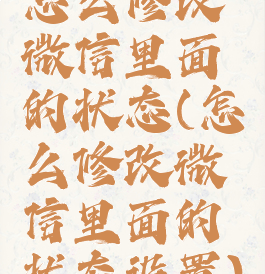 怎么修改
微信里面
的状态(怎
么修改微
信里面的
状态设置)